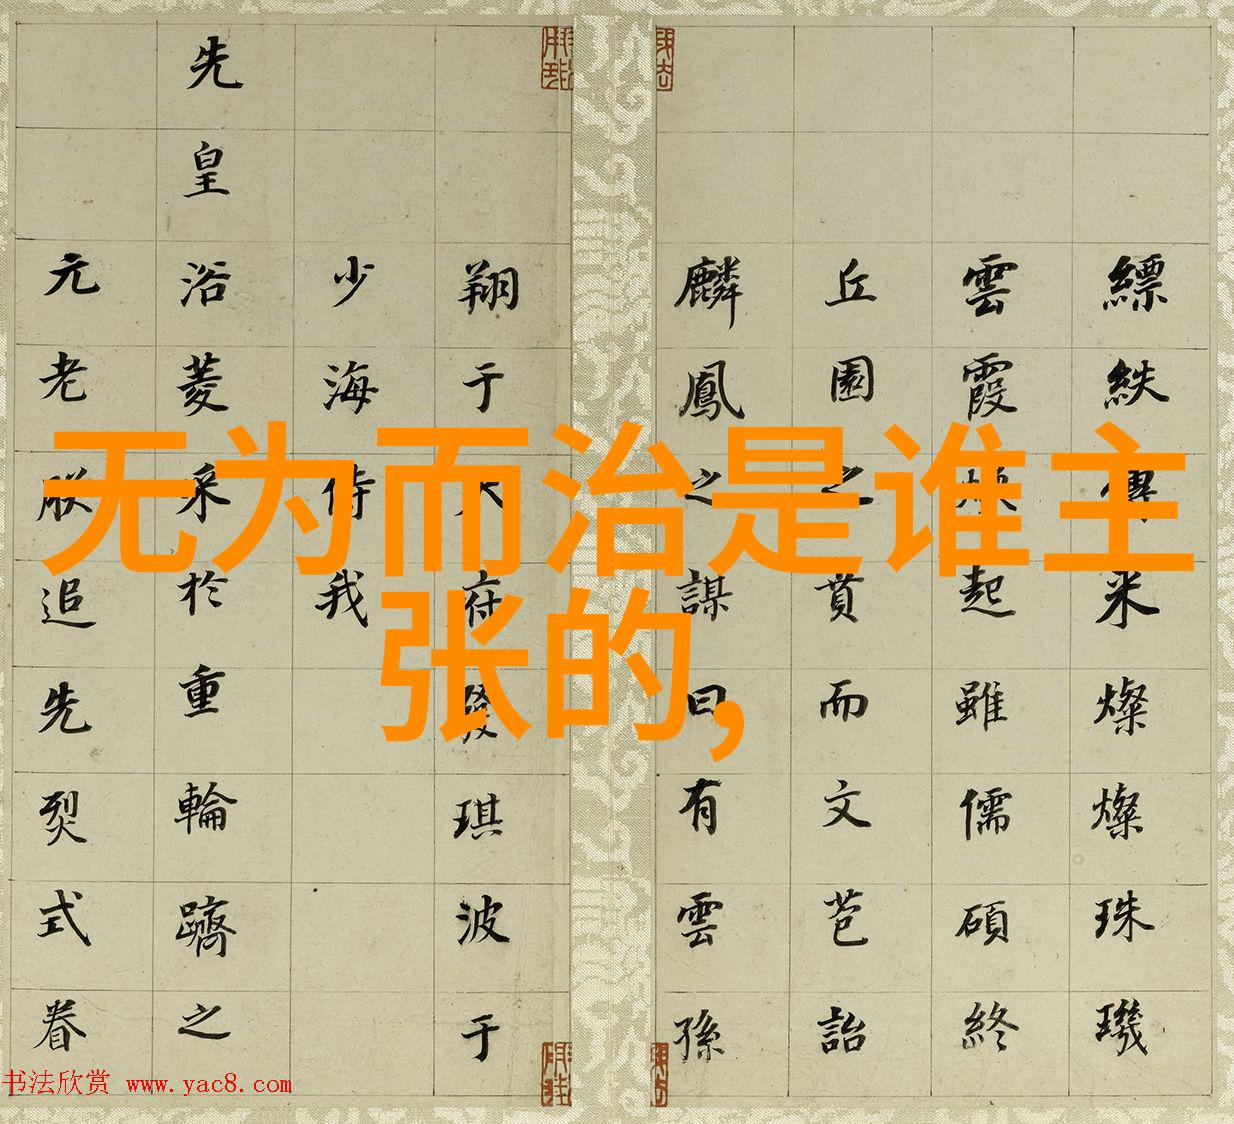 无为而治是谁主
张的,
縹紩米燦燦珠璣
雲霞起雖儒碩終
丘園之賁而文芭詒
麟鳳之謀曰有雲孫
翔于府發琪波于
少海侍我
先皇浴菱采於重輪躋之
元老朕追先烈式眷
书法欣赏 www.yac8.com